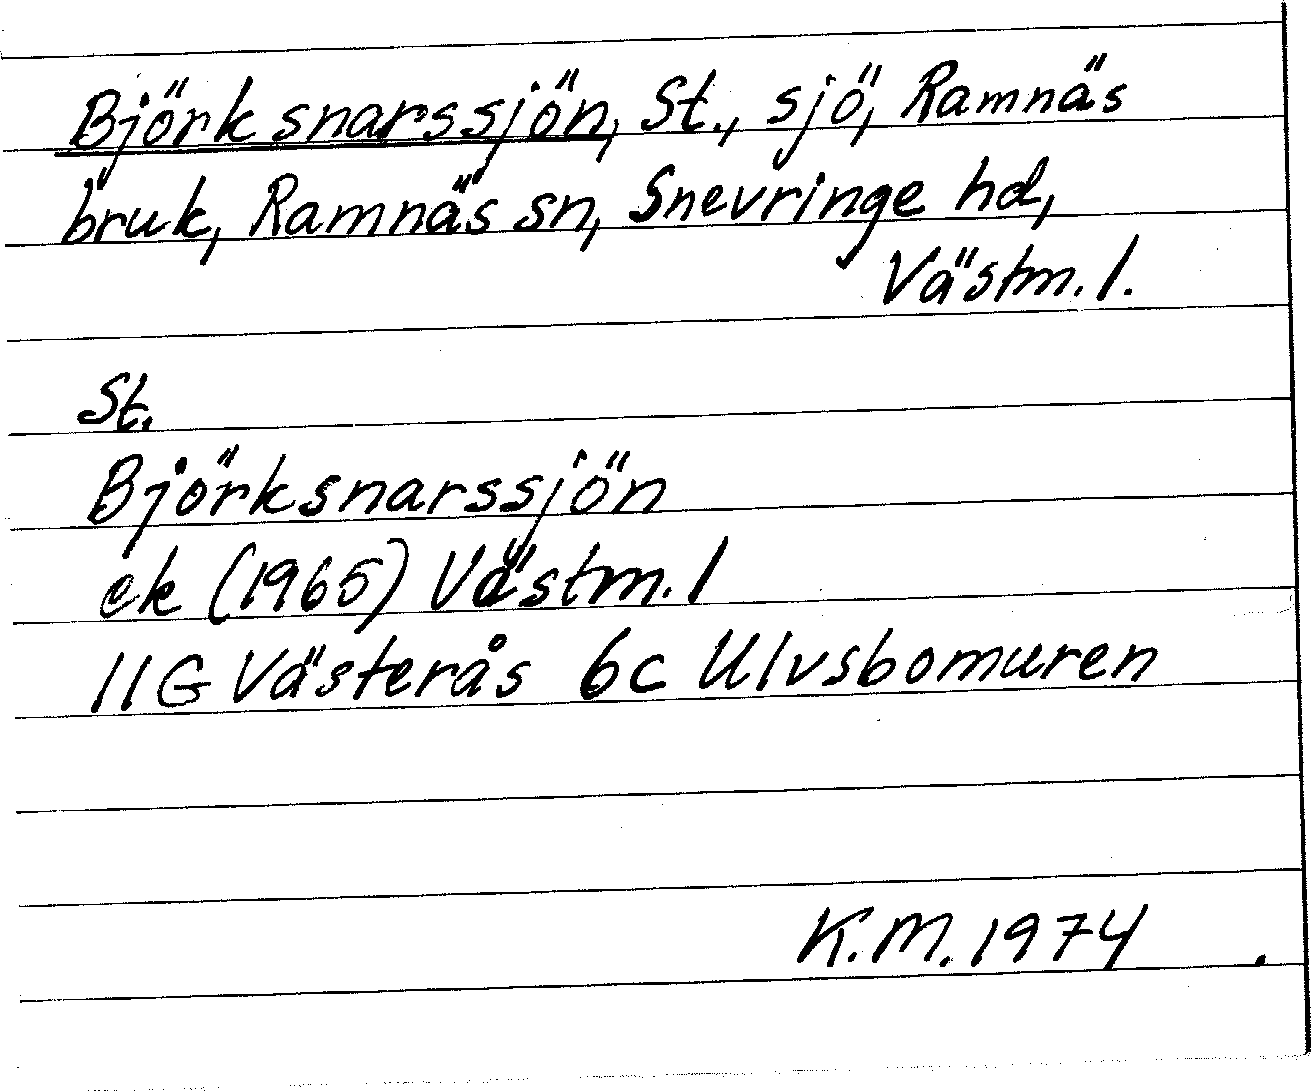 Björksnarssjön, St., sjö, Ramnäs
bruk, Ramnäs sn, Snevringe hd,
Västm. l.
St.
Björksnarssjön
ek (1965) Västm. l
11G Västerås 6c Ulvsbomuren
K.M. 1974